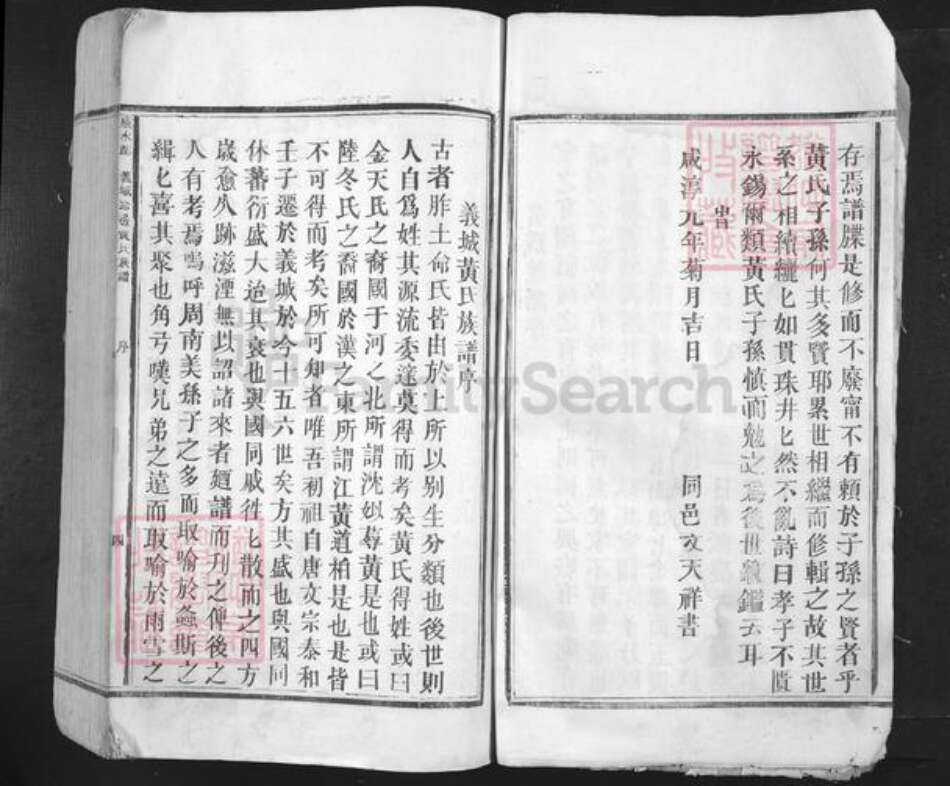 存焉譜牒是修而不廢甯不有賴於子孫之賢者乎
黃氏子孫何其多賢耶累世相繼而修輯之故其世
系之相續纚匕如貫珠井匕然不亂詩曰孝子不匱
永錫爾類黃氏子孫慎而勉之為後世鏡鑑云耳
旹
咸淳元年菊月吉日 同邑文天祥書
義城黃氏族譜序
古者胙土命氏皆由於上所以别生分類也後世則
人自爲姓其源流委達莫得而考矣黃氏得姓或曰
金天氏之裔國于河之北所謂沈姒蓐黃是也或曰
陸冬氏之裔國於漢之東所謂江黃道柏是也是皆
不可得而考矣所可知者唯吾初祖自唐文宗泰和
壬子遷於義城於今十五六世矣方其盛也與國同
休蕃衍盛大迨其衰也與國同戚徃匕散而之四方
歲愈久跡滋湮無以詔諸來者廼譜而刋之傳後之
人有考焉嗚呼周南美孫子之多而取喻於螽斯之
緝匕喜其聚也角弓嘆兄弟之遠而取喻於雨雪之
序
四
FamilySearch